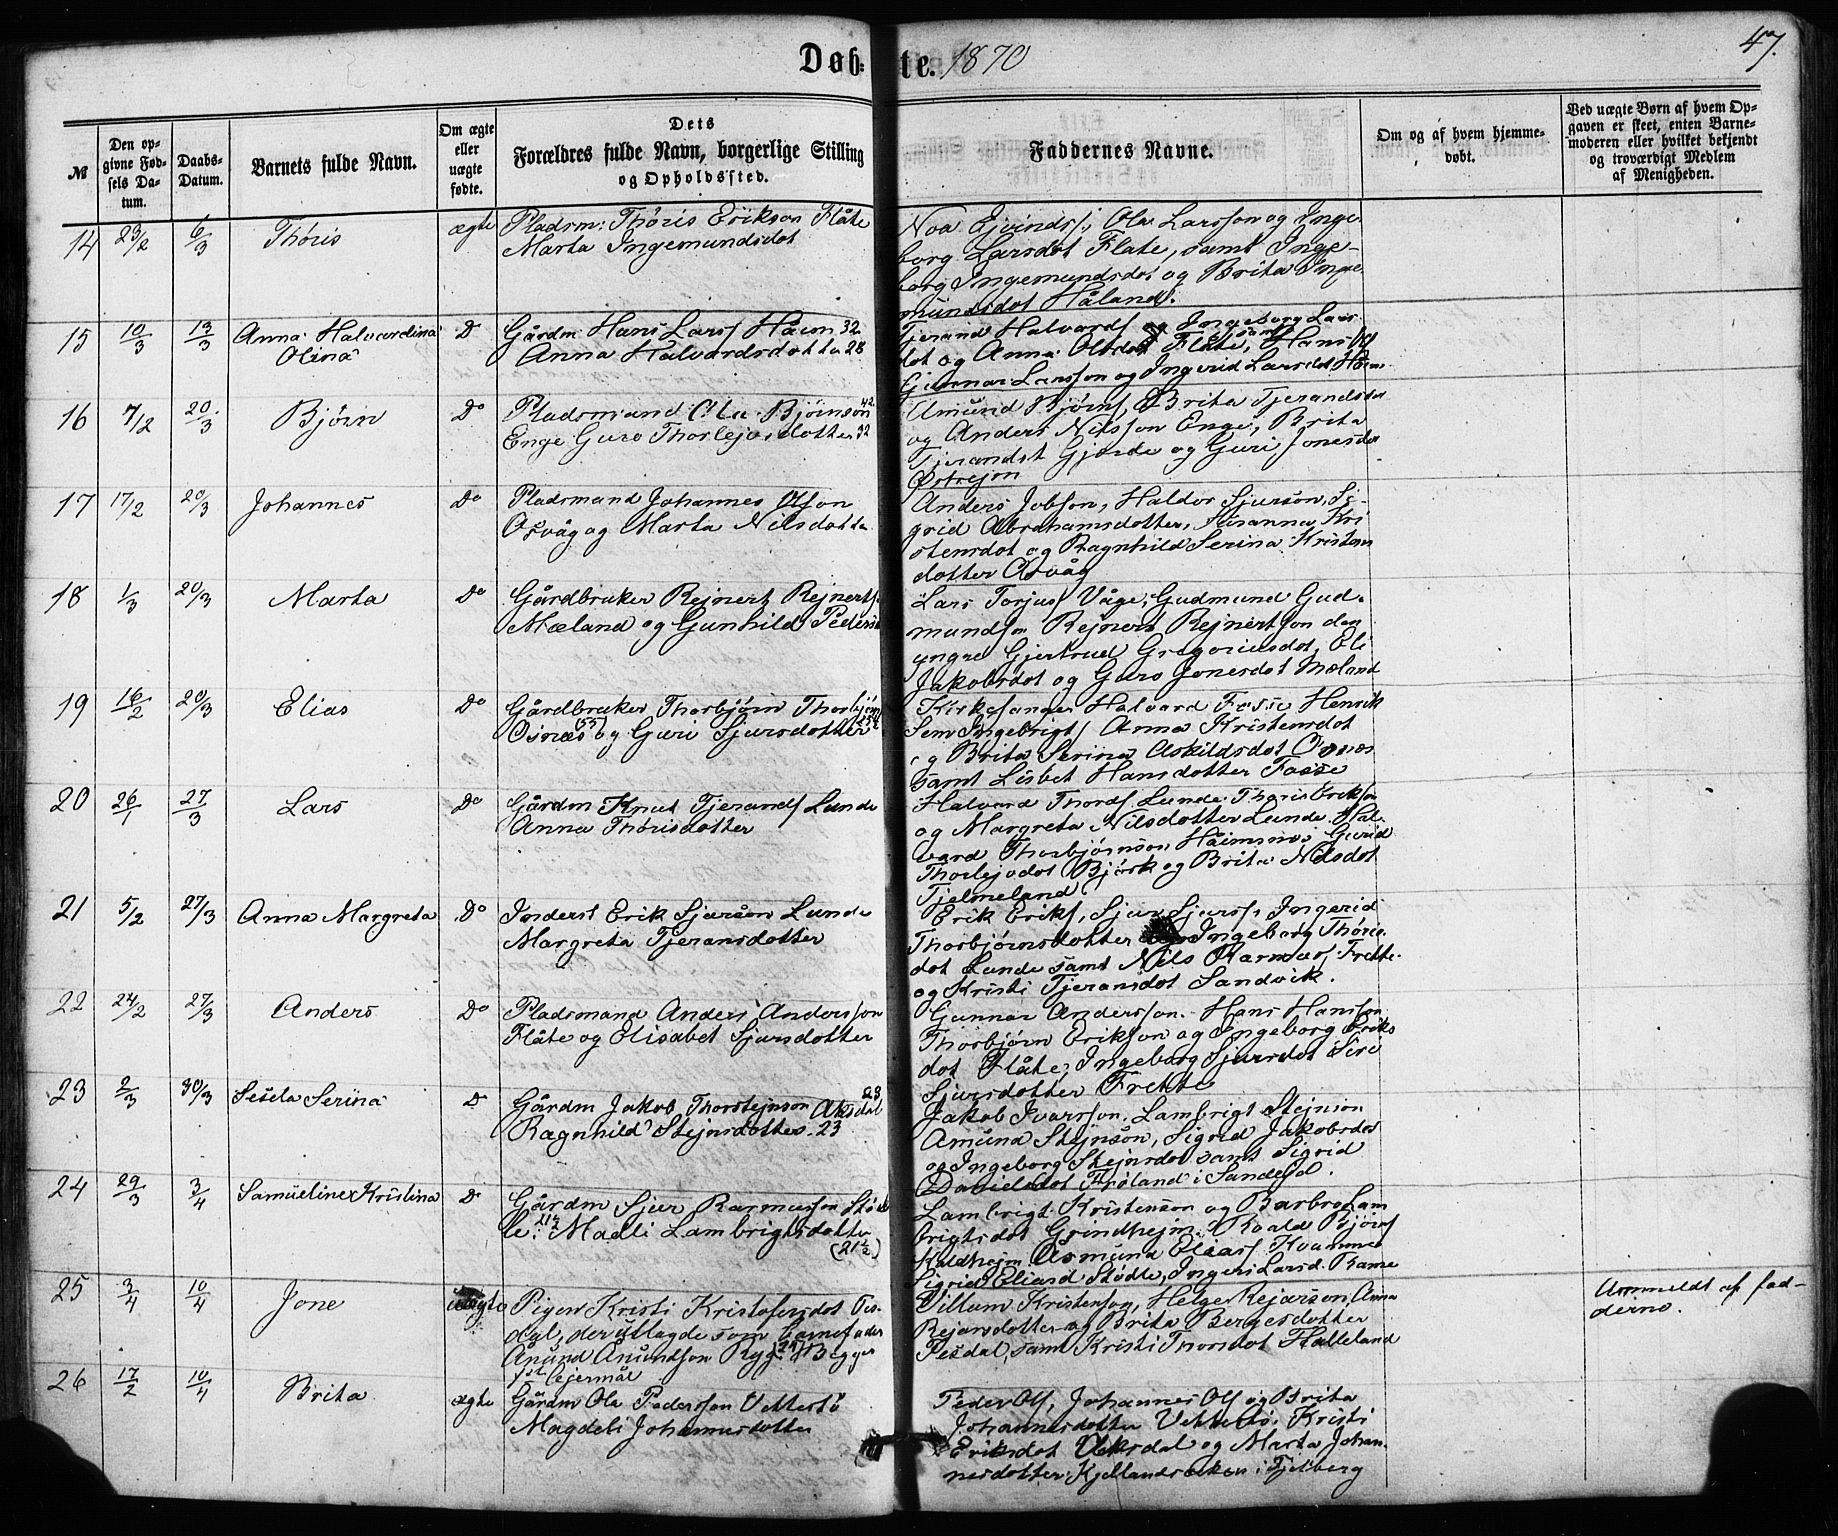 Døb: te. 1870
47.
№
Den opgivne Fødsels Datum.
Daabs-Datum.
Barnets fulde Navn.
Om ægte eller uægte fødte.
Dets
Forældres fulde Navn, borgerlige Stilling
og Opholdssted.
Faddernes Navne.
Om og af hvem hjemmedøbt.
Ved uægte Børn af hvem Opgaven er skeet, enten Barnemoderen eller hvilket bekjendt og troværdigt Medlem af Menigheden.
14 23/2 6/3 Thóris ægte Pladsm: Thóris Erikson Flåte
Marta Ingemundsdot
Noa Ejvindss, Ola Larsson og Inge-
borg Larsdot Flate, samt Inge-
borg Ingemundsdot og Brita Inge
mundsdot Håland.
15 10/3 13/3 Anna Halvardina
Olina
D Gårdm Hans Larss 32
Anna Halvardsdotter 28
Tjerand Halvards og Ingeborg Lars
dot og Anna Olsdot Flåte, samt Hans
Gunnar Larsson og Ingerid Larsdot
16 7/2 20/3 Bjórn Do Pladsmand Ola Bjórnson 42
Enge Guro Thorlejvsdotter 32
Amund Bjórns, Brita Tjerandsdot
og Anders Nilsson Enge, Brita
Tjerandst Gjerde og Guri Jonesdot
17 17/2 20/3 Johannes Do Pladsmand Johannes Olson
Osvåg og Marta Nilsdotter
Anders Jobson, Haldor Sjurson, Si-
grid Abrahamsdotter, Susanna Kri
stensdot og Ragnhild Serina Kristens
dotter Osvåg
18 1/3 20/3 Marta Do Gårdbruker Rejnert Rejnerts
Mæland og Gunhild Peders
Lars Torjus Våge, Gudmund Gud-
munds Rejnert Rejnertson den
yngre Gjertrud Gregoriusdot, Eli
Jakobsdot og Guro Jonesdot Mæland
19 16/2 20/3 Elias Do Gårdbruker Thorbjórn Thorbjórns
Osnæs (55) og Guri Sjursdotter
Kirkesanger Halvard Fosse Henrik
Sem Ingebrigt Anna Kristensdot
og Brita Serina Askildsdot Osnæs
samt Lisbet Hansdotter Fosse
20 26/1 27/3 Lars Do Gårdm Knut Tjerands Lunde
Anna Thórisdotter
Halvard Thords Lunde Thoris Erikson
og Margreta Nilsdotter Lunde, Hal-
vard Thorbjórnson Håimsnes Gurid
Thorlejvdot Bjórk og Brita Nilsdot
Tjelmeland
21 5/2 27/3 Anna Margreta Do Inderst Erik Sjurson Lunde
Margreta Tjeransdotter
Erik Eriks, Sjur Sjurss, Ingerid
Thorbjórnsdotter Ingeborg Thóris
dot Lunde samt Nils Rasmus Frette
og Kristi Tjeransdot Sandvik.
22 24/2 27/3 Anders Do Pladsmand Anders Andersson
Flåte og Elisabet Sjursdotter
Gunnar Andersson. Hans Hansson
Thorbjórn Erikson og Ingeborg Eriks
dot Flåte, Ingeborg Sjursdot Siri
Sjursdotter Frette
23 2/3 30/3 Sesela Serina D Gårdm Jakob Thorstejnson Aksdal 28
Ragnhild Stejnsdotter 23
Jakob Ivarsson, Lambrigt Stejnson
Amund Stejnson, Sigrid Jakobsdot
og Ingeborg Stejnsdot samt Sigrid
Danielsdot Frøland i Sandeid.
24 29/3 3/4 Samüeline Kristina D Gårdm Sjur Rasmusson Stód
le: Madli Lambrigtsdotter
(21 1/2)
Lambrigt Kristenson og Barbro Lam
brigtsdot Grindhejm. Roald Bjórns
Kaldhejm Asmund Elias Kvamme
Sigrid Eliasd Stódle, Inger Larsd. Ramne
25 3/4 10/4 Jone uægte Pigen Kristi Kristofersdot Tes-
dal, der utlagde som barnefader
Anund Anundson Rygg Begges
1st lejermål
Villum Kristenson, Helge Rejarson, Anna
Rejarsdotter og Brita Bergesdotter
Tesdal, samt Kristi Thorsdot Halleland
Anmeldt af fad-
derne.
26 17/2 10/4 Brita ægte Gårdm Ola Pederson Vettestó
Magdeli Johannesdotter
Peder Ols, Johannes Ols og Brita
Johannesdotter Vettestó, Kristi
Eriksdot Veksdal og Marta Johan
nesdotter i Fjelberg